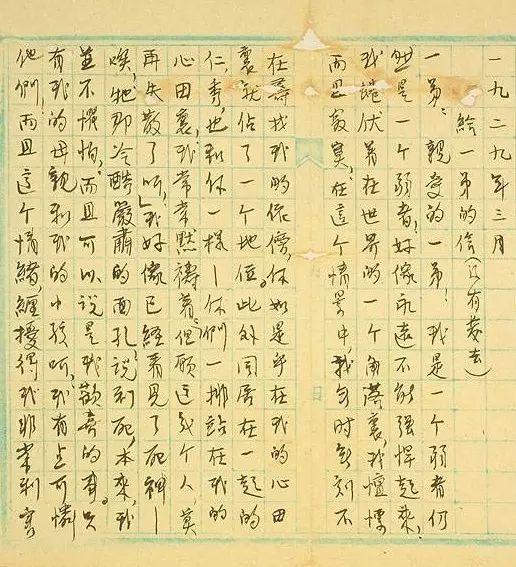 一九二九年三月
給一弟的信（只有莪去）
一弟，親愛的一弟！我是一个弱者，何
然是一个弱者，好像永遠不能强悍起來，
我蜷伏着在世界的一个角落裏，我恒懔
而且寂寞，在這个情景中，我無时無刻不
在尋找我的偶像，你如是乎在我的心田
裏就佔了一个地位。此外同居在一起的
仁，秀，也和你一樣—你們一排站在我的
心田裏，我常常默禱着，但願這几个人，莫
再失散了呀，我好像已經看見了死神—
唉，牠那冷酷嚴肅的面孔，說到死，本來，我
並不懼怕，而且可以說是我歡喜的。有只
有我的母親和我的小孩呵，我有点可憐
他們，而且這个情緒，纏擾得我非常利害